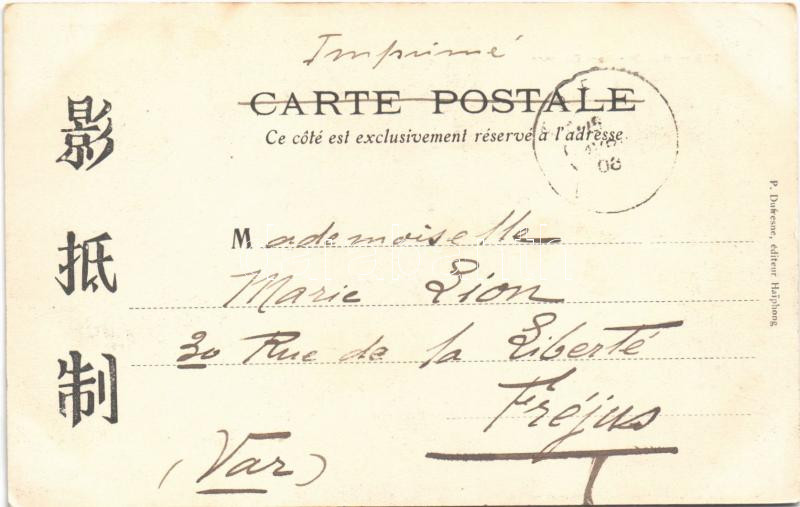 Imprimé
CARTE POSTALE
Ce côté est exclusivement réservé à l'adresse
影
抵
制
Mademoiselle
Marie Lion
30 Rue de la Liberté
Fréjus
(Var)
P. Dufresne, éditeur Haïphong
08